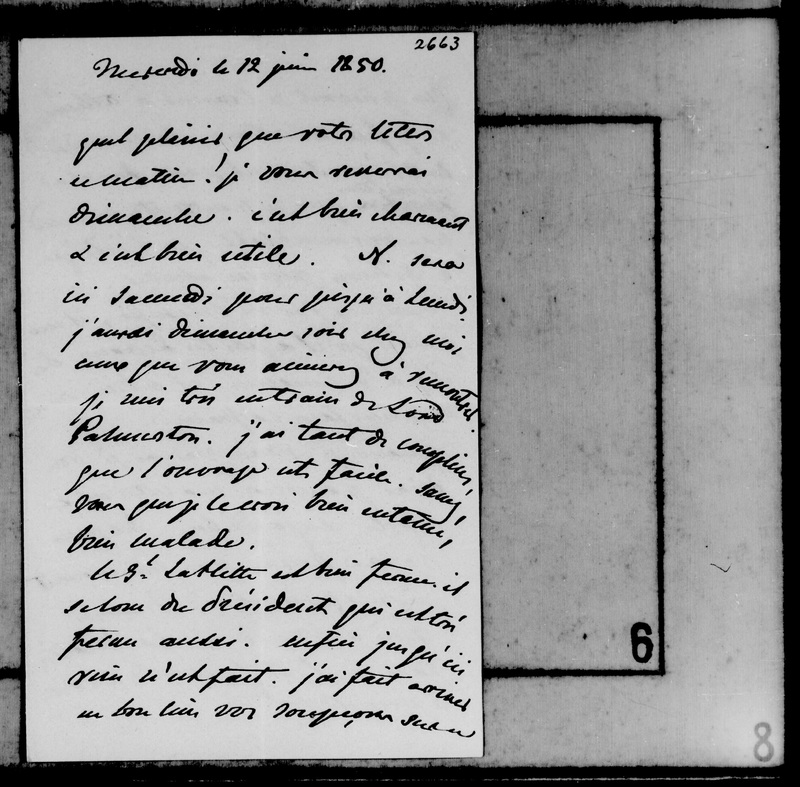 2663
Mercredi le 12 juin 1850.
quel plaisir que votre lettre
ce matin ! je vous reverrai
dimanche. c'est bien charmant
& c'est bien utile. N. sera
ici samedi pour jusqu'à lundi.
j'aurai dimanche soir chez moi
ceux que vous aimerez à rencontrer.
je suis très en train de Lord
Palmerston. j'ai tant de complices,
que l'ouvrage est facile. savez
vous que je le crois bien entamé,
bien malade.
le Gl. Lahitte est bien ferme. il
se loue du Président qui est très
ferme aussi. enfin jusqu'ici
rien n'est fait. j'ai fait arriver
en bon lieu vos soupçons sur
6
8